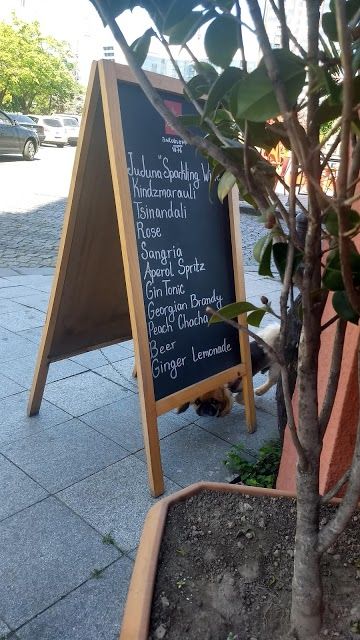 Juduna "Sparkling W
Kindzmarauli
Tsinandali
Rose
Sangria
Aperol Spritz
Gin Tonic
Georgian Brandy
Peach Chacha
Beer
Ginger Lemonade